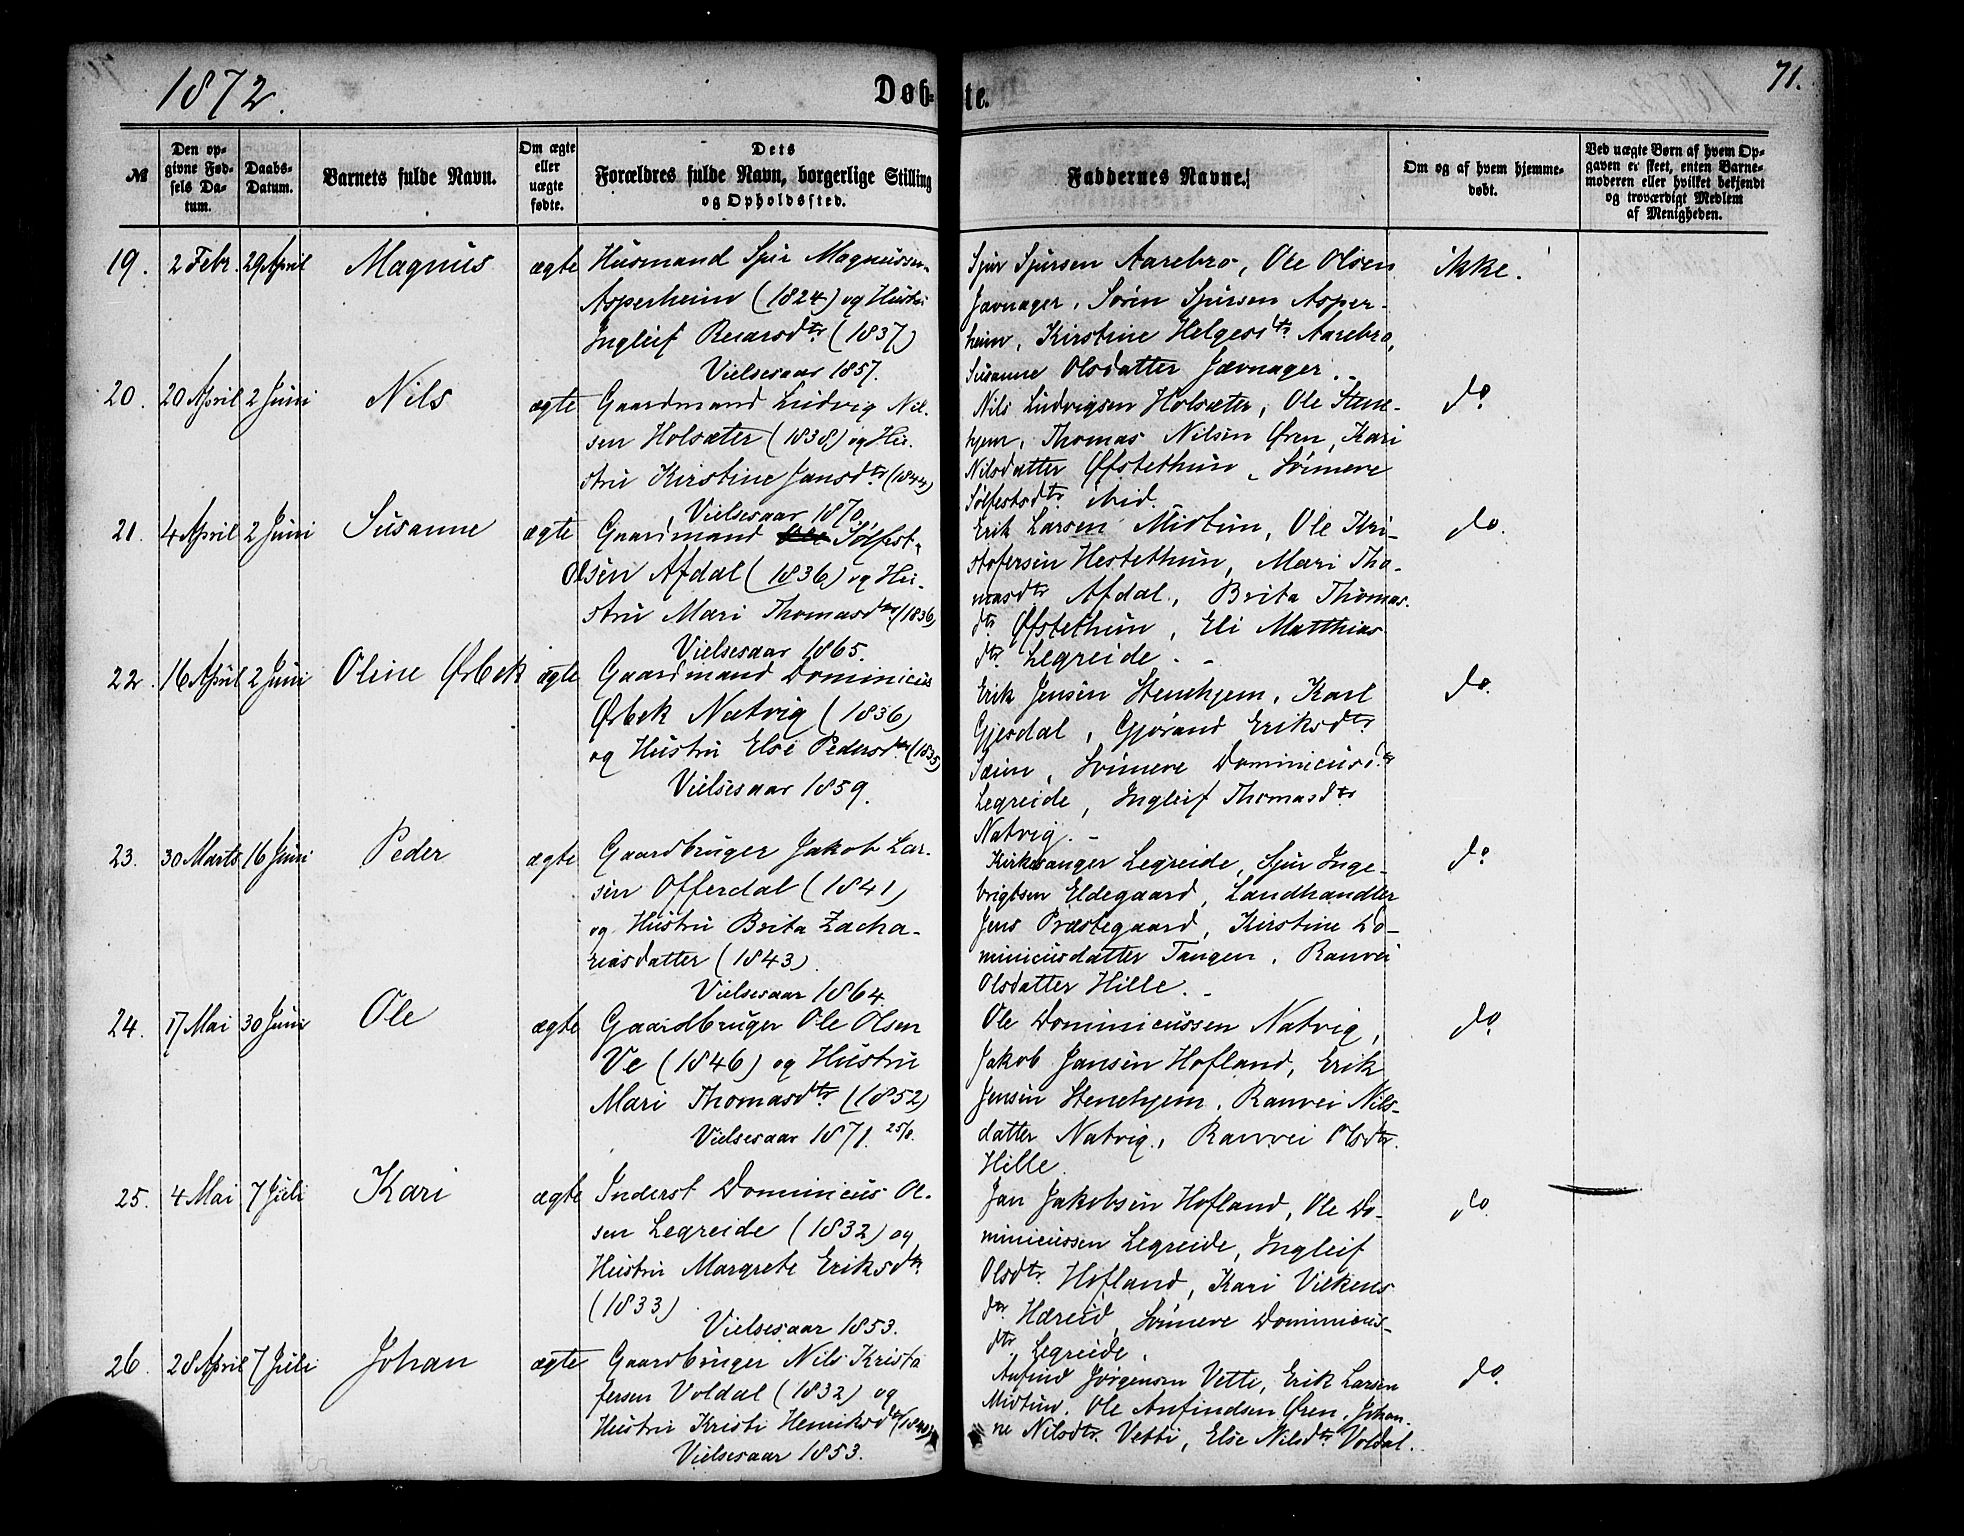 1872.
Døb-
te.
71.
№
Den op-
givne Fød-
sels Da-
tum.
Daabs-
Datum.
Barnets fulde Navn.
Om ægte
eller
uægte
fødte.
Dets
Forældres fulde Navn, borgerlige Stilling
og Opholdssted.
Faddernes Navne.
Om og af hvem hjemme-
døbt.
Ved uægte Børn af hvem Op-
gaven er skeet, enten Barne-
moderen eller hvilket bekjendt
og troværdigt Medlem
af Menigheden.
19. 2 Febr. 29 April Magnus ægte Husmand Sjur Magnussen
Asperheim (1824) og Hustru
Ingleif Reiarsdtr (1837)
Vielsesaar 1857.
Sjur Sjursen Aarebro, Ole Olsen
Jævnager, Søren Sjursen Asper-
heim, Kirstine Helgesdtr Aarebro,
Susanne Olsdatter Jævnager.
ikke.
20. 20 April 2 Juni Nils ægte Gaardmand Ludvig Nil-
sen Holsæter (1838) og Hu-
stru Kirstine Jansdtr (1844)
Vielsesaar 1870.
Nils Ludvigsen Holsæter, Ole Stene-
hjem, Thomas Nilsen Øren, Kari
Nilsdatter Øfstethun, Sunneve
Sølfestsdtr ibid.
do
21. 4 April 2 Juni Susanne ægte Gaardmand Sølfest
Olsen Afdal (1836) og Hu-
stru Mari Thomasdtr (1836)
Vielsesaar 1865.
Erik Larsen Midtun, Ole Kri-
stofersen Hestethun, Mari Tho-
masdtr Afdal, Brita Thomas-
dtr Øfstethun, Eli Matthias
dtr Legreide.
do.
22. 16 April 2 Juni Oline Ørbek ægte Gaardmand Dominicus
Ørbek Natvig (1836)
og Hustru Else Pedersdtr (1835)
Vielsesaar 1859.
Erik Jensen Stenehjem, Karl
Gjesdal, Gjørand Eriksdtr
Sæim, Sunneve Dominicusdtr
Legreide, Ingleif Thomasdtr
Natvig.
do.
23. 30 Marts 16 Juni Peder ægte Gaardbruger Jakob Lar-
sen Offerdal (1841)
og Hustru Brita Zacha-
riasdatter (1843)
Vielsesaar 1864
Kirkesanger Legreide, Sjur Inge-
brigtsen Eldegaard, Landhandler
Jens Præstegaard, Kirstine Do-
minicusdatter Tangen, Ranvei
Olsdatter Hille.
do
24. 17 Mai 30 Juni Ole ægte Gaardbruger Ole Olsen
Ve (1846) og Hustru
Mari Thomasdtr (1852)
Vielsesaar 1871. 25/8.
Ole Dominicussen Natvig,
Jakob Jansen Hofland, Erik
Jensen Stenehjem, Ranvei Nils-
datter Natvig, Ranvei Olsdtr.
Hille.
do
25. 4 Mai 7 Juli Kari ægte Inderst Dominicus Ol-
sen Legreide (1832) og
Hustru Margrete Eriksdtr
(1833)
Vielsesaar 1853.
Jan Jakobsen Hofland, Ole Do-
minicussen Legreide, Ingleif
Olsdtr Hofland, Kari Vilkens
dtr Hæreid, Sunneve Dominicus-
dtr Legreide.
do
26. 28 April 7 Juli Johan ægte Gaardbruger Nils Kristo
fersen Voldal (1832) og
Hustru Kristi Henriksdtr
Vielsesaar 1853.
Anfind Jørgensen Vetti, Erik Larsen
Midtun, Ole Anfindsen Øren, Johan-
ne Nilsdtr. Vetti, Else Nilsdtr Voldal.
do